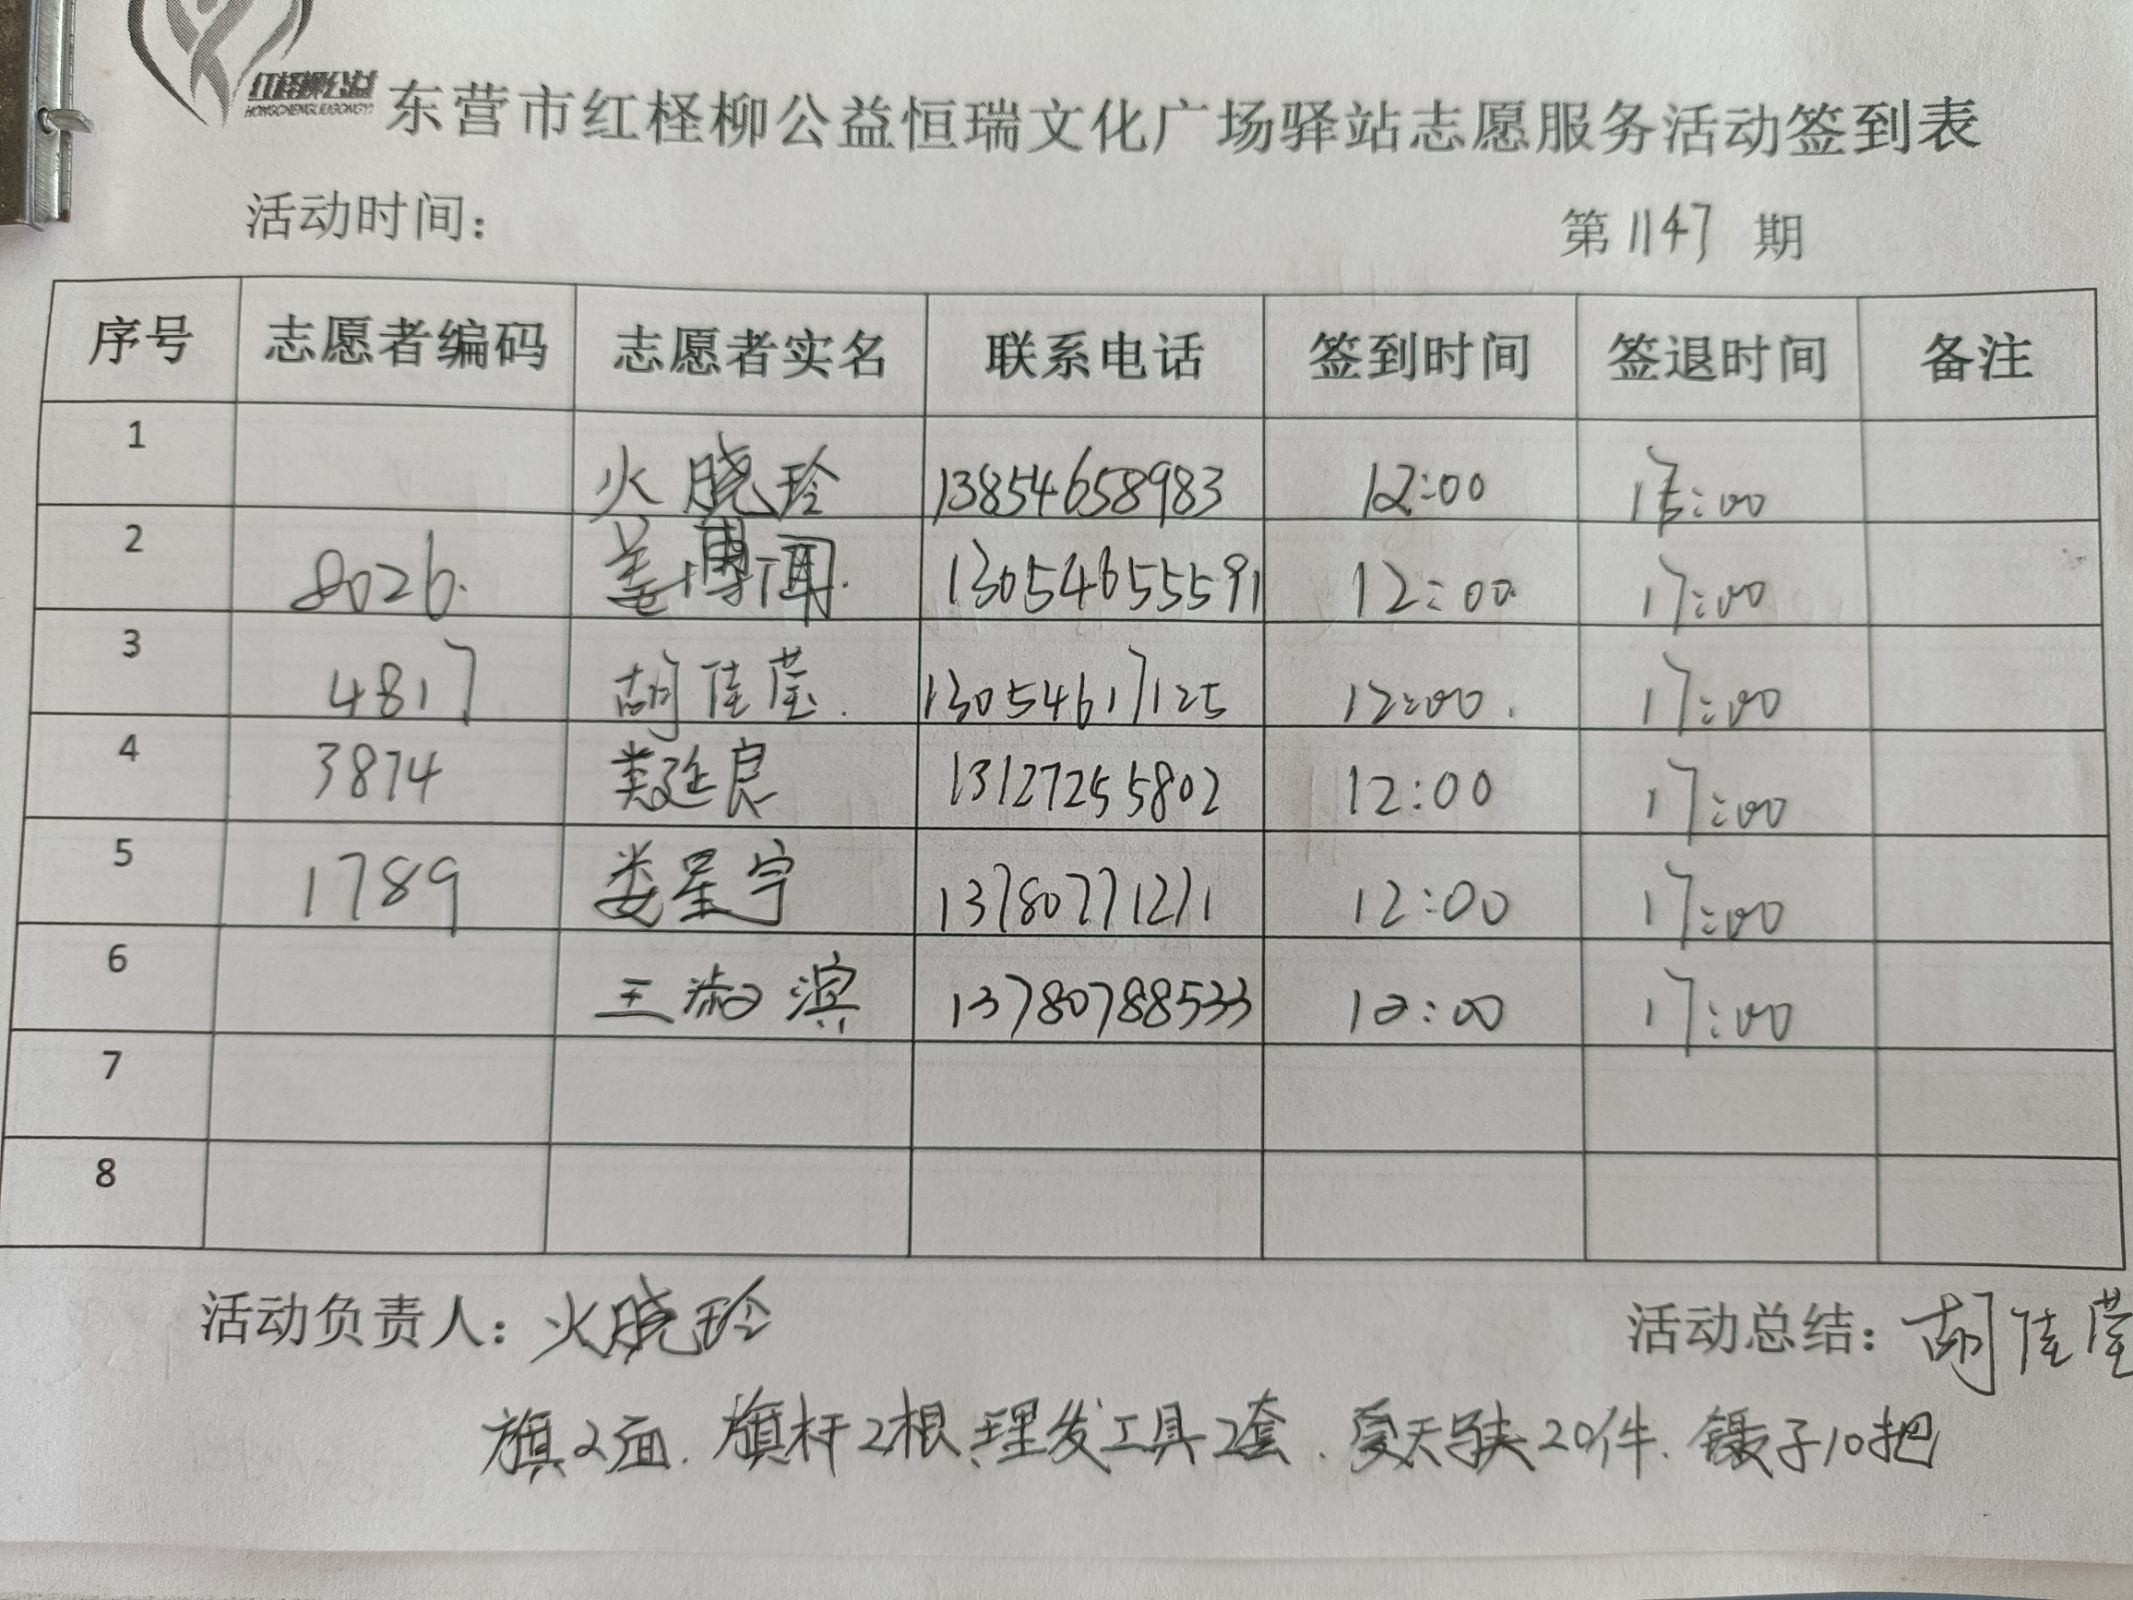 红柽柳公益
HONGCHENGLIUGONGYI
东营市红柽柳公益恒瑞文化广场驿站志愿服务活动签到表
活动时间: 第1147期
序号 志愿者编码 志愿者实名 联系电话 签到时间 签退时间 备注
1 火晓玲 13854658983 12:00 17:00
2 8026. 姜博闻. 13054655591 12:00 17:00
3 4817 胡佳莹. 13054617125 12:00. 17:00
4 3874 娄延良 13127255802 12:00 17:00
5 1789 娄星宇 13780771271 12:00 17:00
6 王淑滨 13780788533 12:00 17:00
7
8
活动负责人: 火晓玲 活动总结: 胡佳莹
旗2面. 旗杆2根. 理发工具2套. 夏天马夹20件. 镊子10把